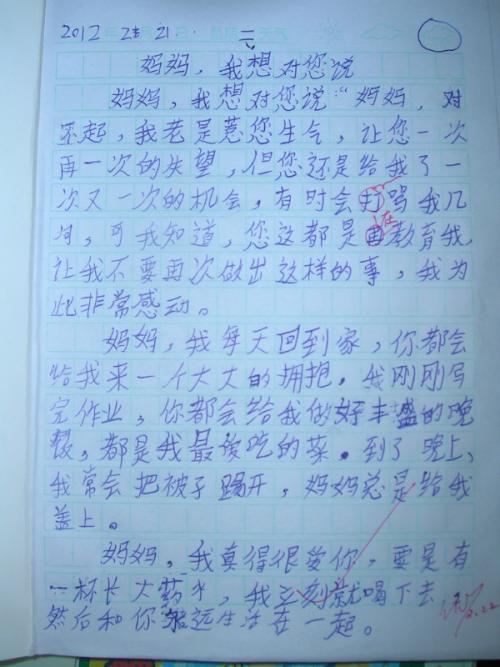 2012年2月21日 星期二 天气
妈妈，我想对您说
妈妈，我想对您说“妈妈，对
不起，我老是惹您生气，让您一次
再一次的失望，但您还是给我了一
次又一次的机会，有时会打骂我几
句，可我知道，您这都是再在教育我，
让我不要再次做出这样的事，我为
此非常感动。
妈妈，我每天回到家，你都会
给我来一个大大的拥抱，我刚刚写
完作业，你都会给我做好丰盛的晚
饭，都是我最爱吃的菜。到了晚上，
我常会把被子踢开，妈妈总是给我
盖上。
妈妈，我真得很爱你，要是有
一杯长大药水，我立刻就喝下去，
然后和你永远生活在一起。
2.22